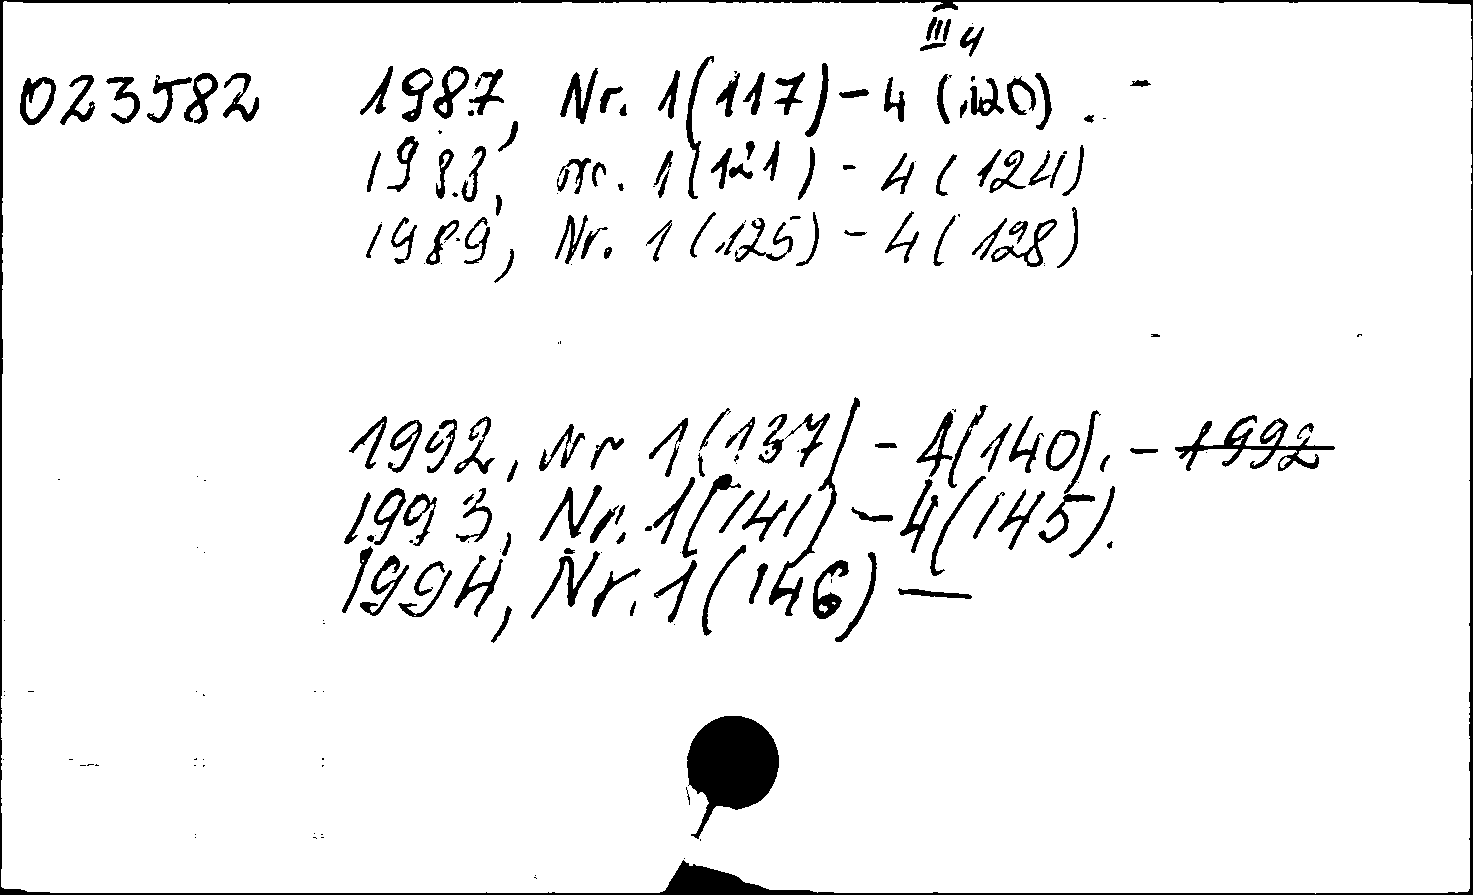 III 4
023582 1987, Nr. 1(117) - 4 (120). -
1988, nr. 1(121) - 4 (124)
1989, Nr. 1 (125) - 4 (128)
1992, Nr 1(137) - 4(140). - 1992
1993, Nr. 1(141) - 4(145).
1994, Nr. 1(146) —